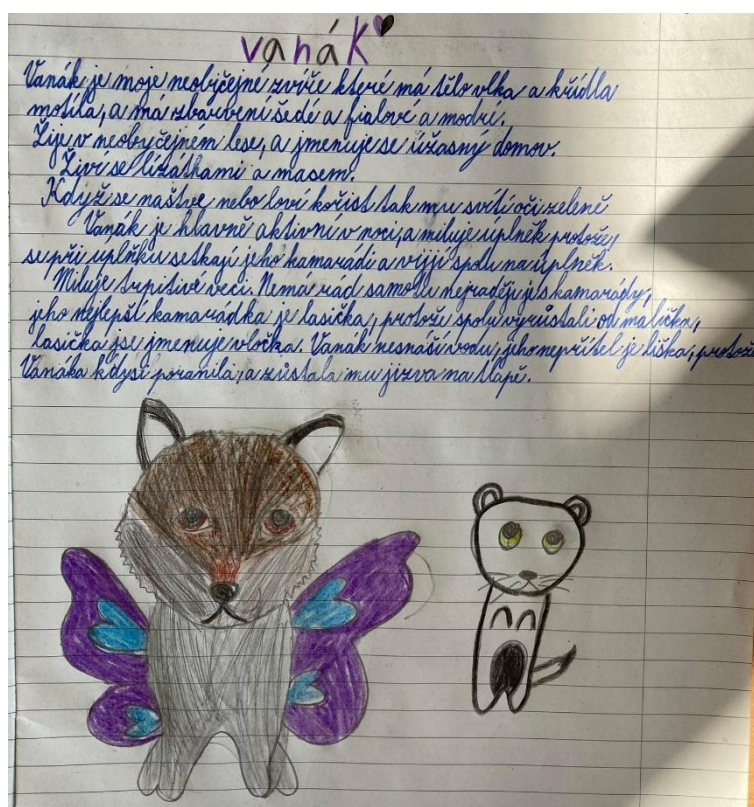 vanák
Vanák je moje neobyčejné zvíře které má tělo vlka a křídla
motíla, a má zbarvení šedé a fialové a modrí.
Žije v neobyčejném lese, a jmenuje se úžasný domov.
Živí se lízátkami a masem.
Když se naštve nebo loví kořist tak mu svítí oči zeleně
Vanák je hlavně aktivní v noci, a miluje uplněk protože,
se při úplňku setkají jeho kamarádi a vijí spolu na úplněk.
Miluje trpitivé veci. Nemá rád samotu nejraději je s kamarády,
jeho nejlepší kamarádka je lasička, protože spolu vyrůstali od malička,
lasička jse jmenuje vločka. Vanák nesnáší vodu, jeho nepřítel je liška, protože
Vanáka kdysi poranila, a zůstala mu jizva na tlapě.